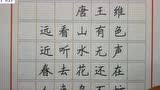 唐王维
远看山有色
近听水无声
春去花还在